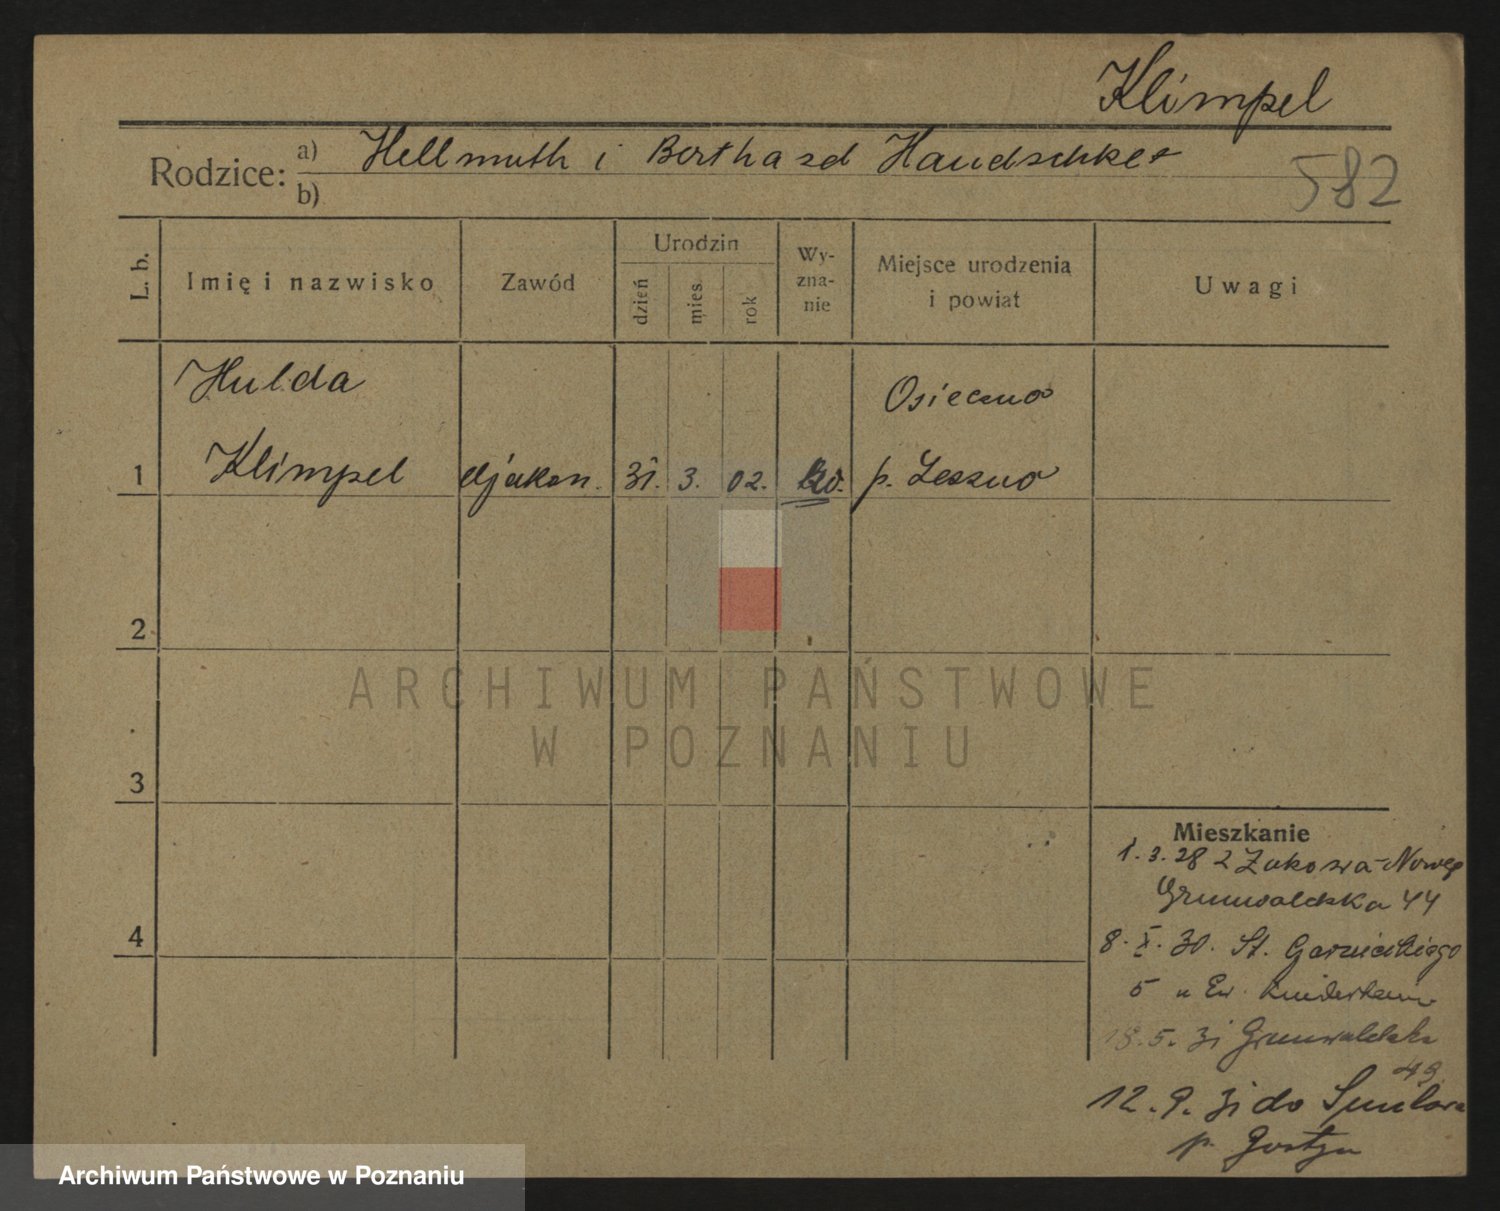 Klimpel
Rodzice: a) Hellmuth i Bertha zd Handschke
b)
582
L. b.
Imię i nazwisko
Zawód
Urodzin
dzień
mies.
rok
Wy-
zna-
nie
Miejsce urodzenia
i powiat
Uwagi
Hulda
Osieczna
1 Klimpel djakon. 31. 3. 02. p. Leszno
2
3
4
ARCHIWUM PAŃSTWOWE
W POZNANIU
Mieszkanie
1.3.28 z
Grunwaldzka 44
8. X. 30. St.
5 u Ew.
18.5.31 Grunwaldzka
49
12.9.31 do
p. Gostyń
Archiwum Państwowe w Poznaniu